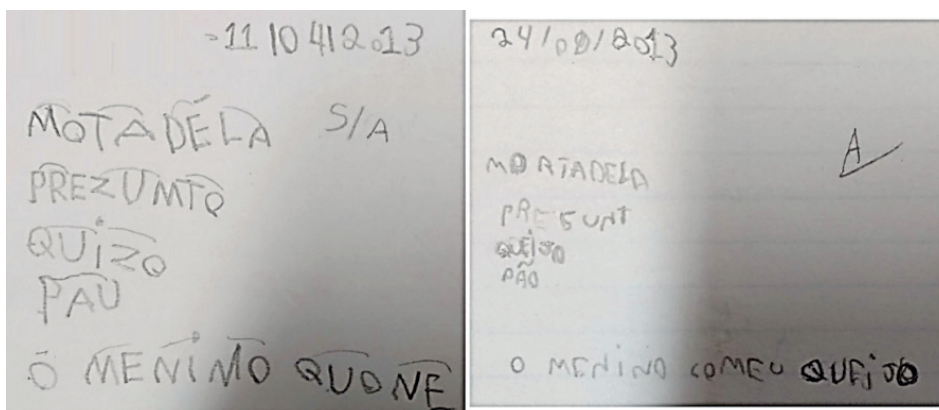 -11/04/2013
MOTADÉLA S/A
PREZUMTO
QUIZO
PAU
O MENIMO QUONE
24/09/2013
A
MORTADELA
PRESUNT
QUEIJO
PÃO
O MENINO COMEU QUEIJO